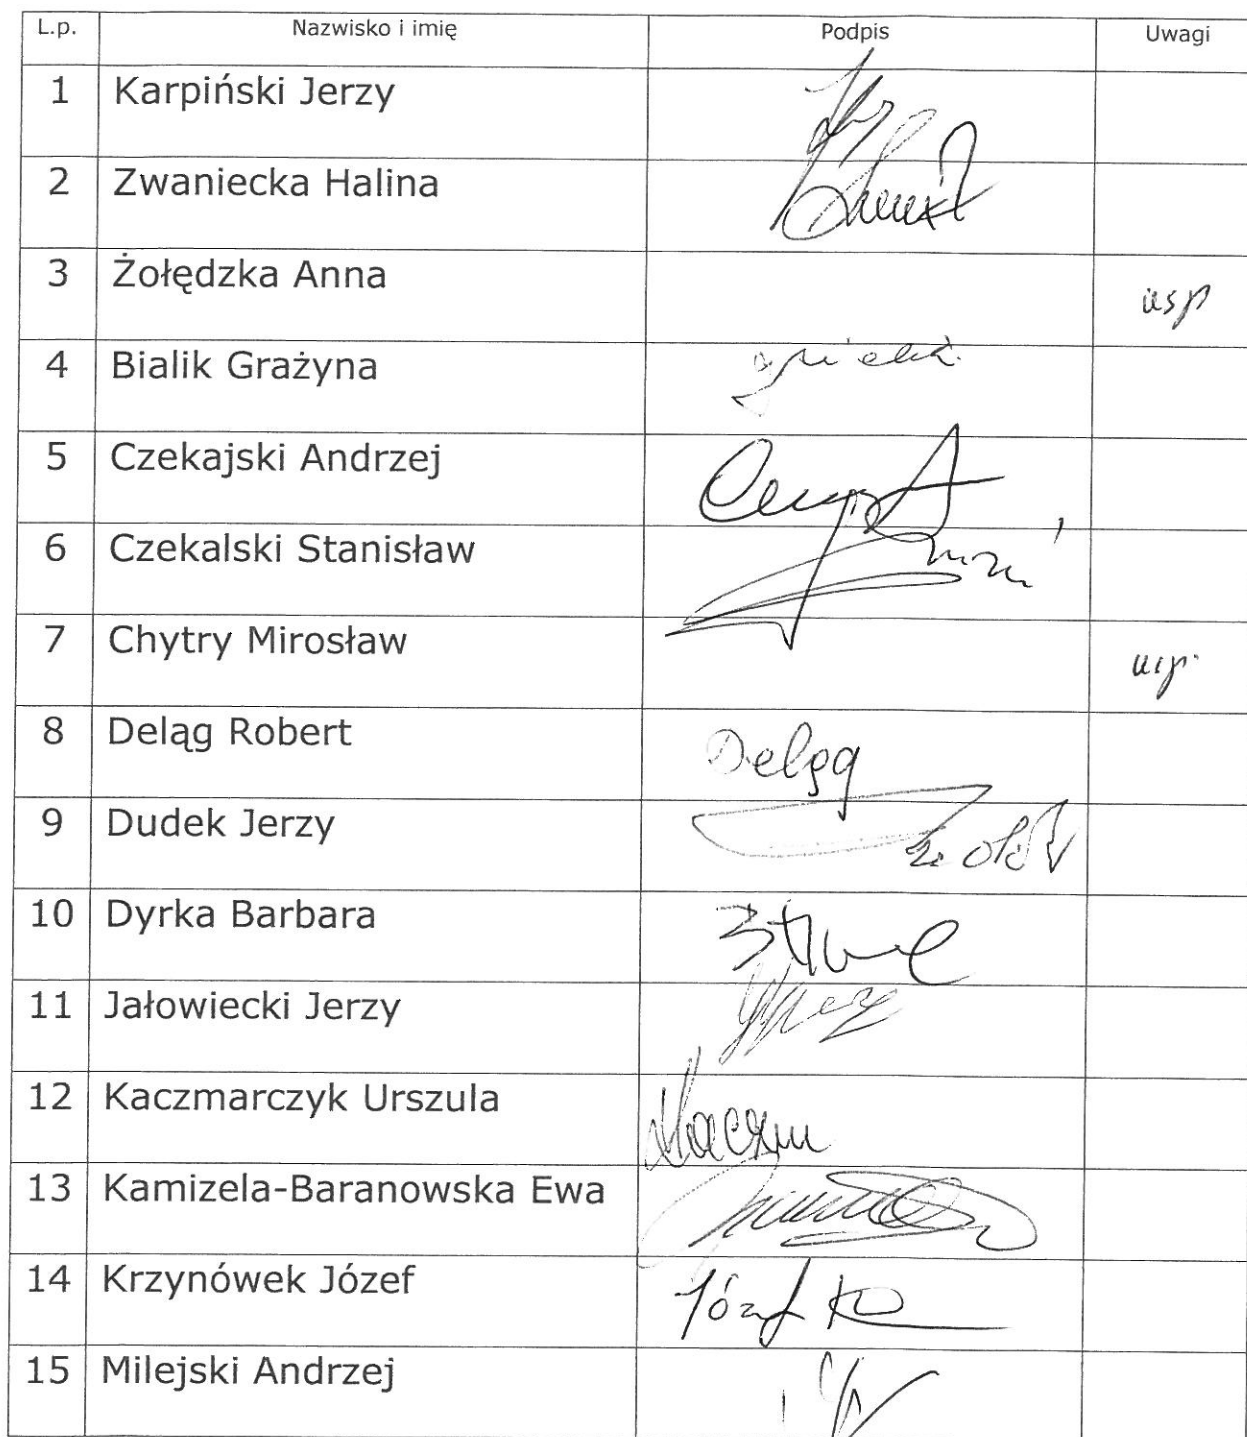 L.p. Nazwisko i imię Podpis Uwagi
1 Karpiński Jerzy
2 Zwaniecka Halina
3 Żołędzka Anna usp
4 Bialik Grażyna
5 Czekajski Andrzej
6 Czekalski Stanisław
7 Chytry Mirosław usp.
8 Deląg Robert Deląg
9 Dudek Jerzy
10 Dyrka Barbara
11 Jałowiecki Jerzy
12 Kaczmarczyk Urszula
13 Kamizela-Baranowska Ewa
14 Krzynówek Józef Józef K
15 Milejski Andrzej